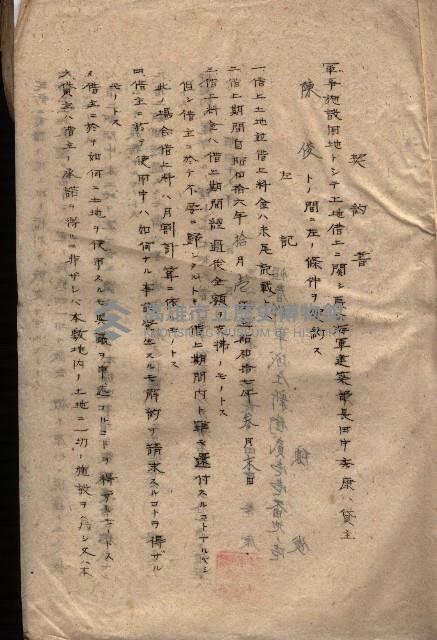 契約書
軍事施設用地トシテ土地借上ニ関シ馬公海軍建築部長田中 康ハ貸主
陳 俊 トノ間ニ左ノ條件ヲ 約ス
左記
一借上土地 借上料金ハ末尾記載ト
二借上期間自昭和拾六年拾月 至昭和拾七年 月末日
三借上料金ハ借上期間經過後全額支拂フモノトス
但シ借主ニ於テ不要ニ歸シタルトキハ借上期間内ト雖モ還付スルコトアルベシ
此ノ場合借上料ハ月割計算ニ依ルモノトス
四借主ニ於テ使用中ハ如何ナル事 發生スルモ解約ヲ請求スルコトヲ得ザル
モノトス
五借主ニ於テ如何ニ土地ヲ使用スルモ異議ヲ申 コトヲ得ザルモノトス
六貸主ハ借主ノ承諾ヲ得ルニ非ザレバ本敷地内ノ土地ニ一切ノ施設ヲ爲シ又ハ本
高雄市立歷史博物館
KAOHSIUNG MUSEUM OF HISTORY